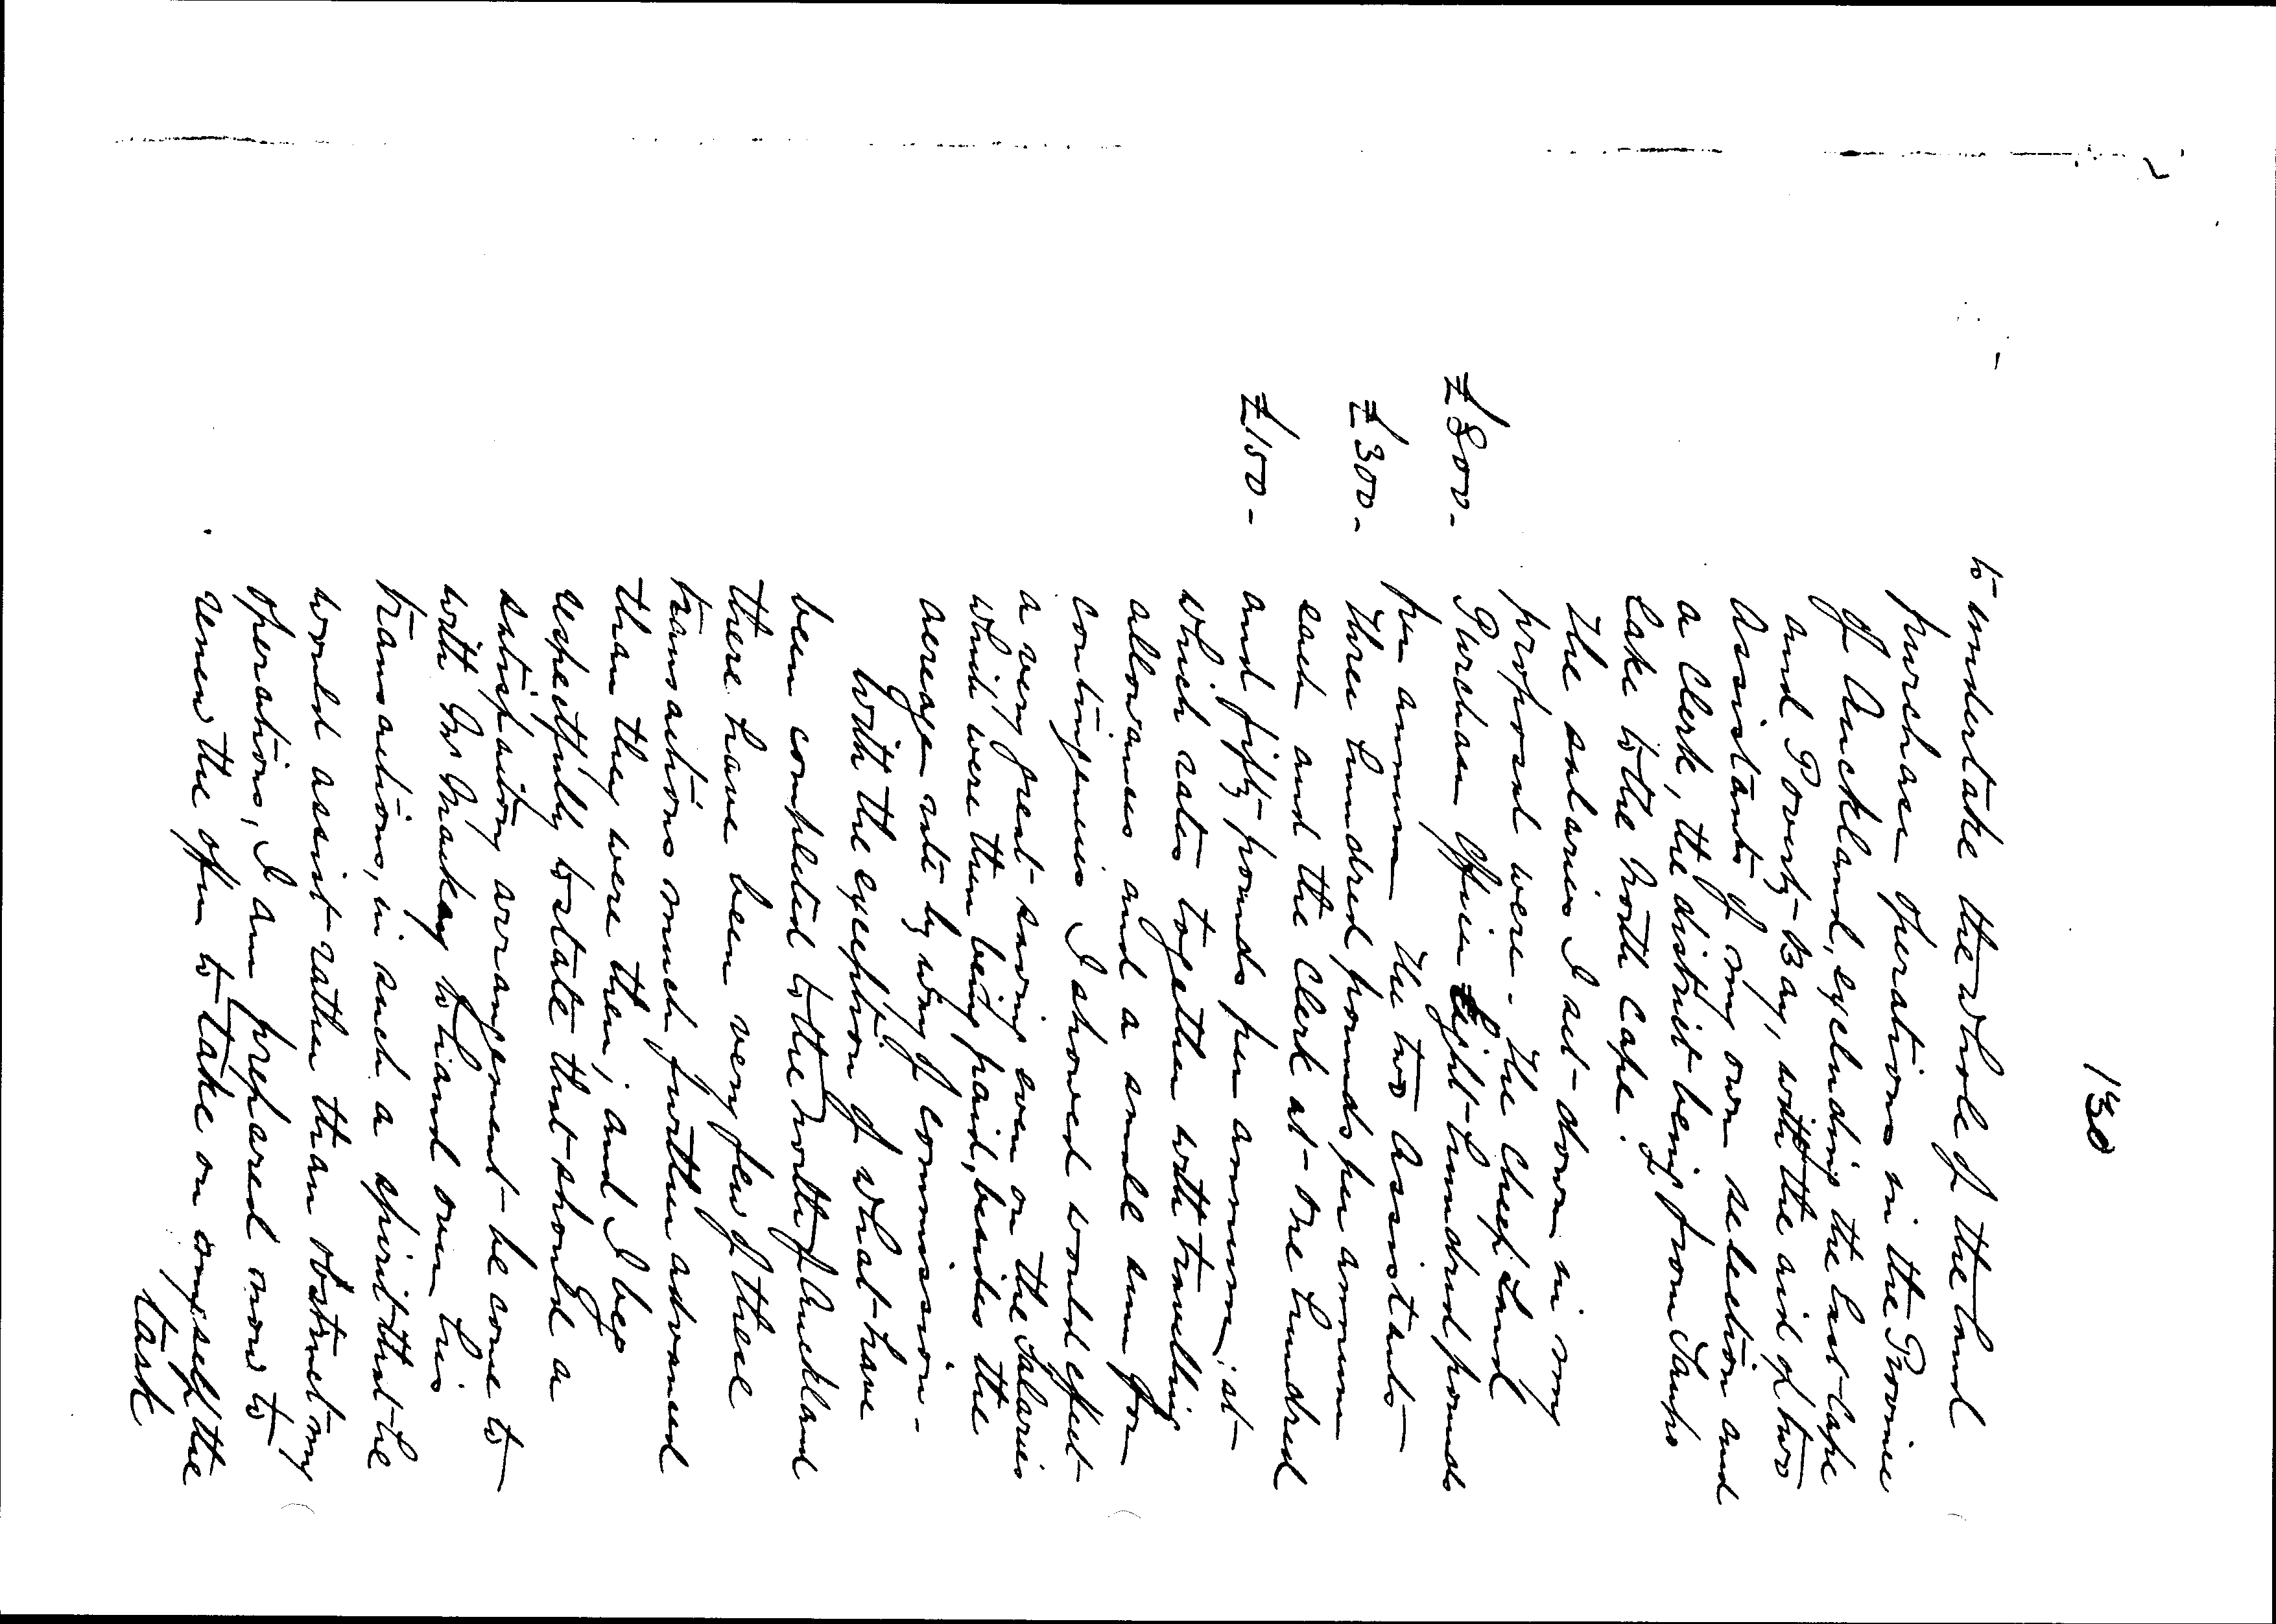 130
to undertake the whole of the Land
purchase operations in the Province
of Auckland, excluding the East Cape
and Poverty Bay, with the aid of two
Assistants of my own selection and
a Clerk, the district being from Taupo
Lake to the North Cape.
The salaries I set down in my
proposal were. The Chief Land
£800- Purchase Officer Eight hundred pounds
per annum The two Assistants
£300- Three hundred pounds per annum
each and the Clerk at One hundred
£150- and fifty pounds per annum; at
which rates together with travelling
allowances and a small sum for
contingencies I showed would effect
a very great saving even on the Salaries
which were then being paid, besides the
acreage rate by way of Commission-
With the exception of what have
been completed to the North of Auckland
there have been very few of these
transactions much further advanced
than they were then; and I beg
respectfully to state that should a
satisfactory arrangement be come to
with Mr Mackay to hand over his
transactions, in such a spirit that he
would assist rather than obstruct my
operations, I am prepared now to
renew the offer to take on myself the
task